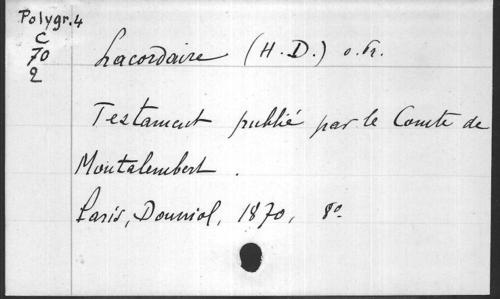 Polygr. 4
C
70
2
Lacordaire (H. D.) o. Pr.
Testament publié par le Comte de
Montalembert.
Paris, Douniol, 1870, 8º